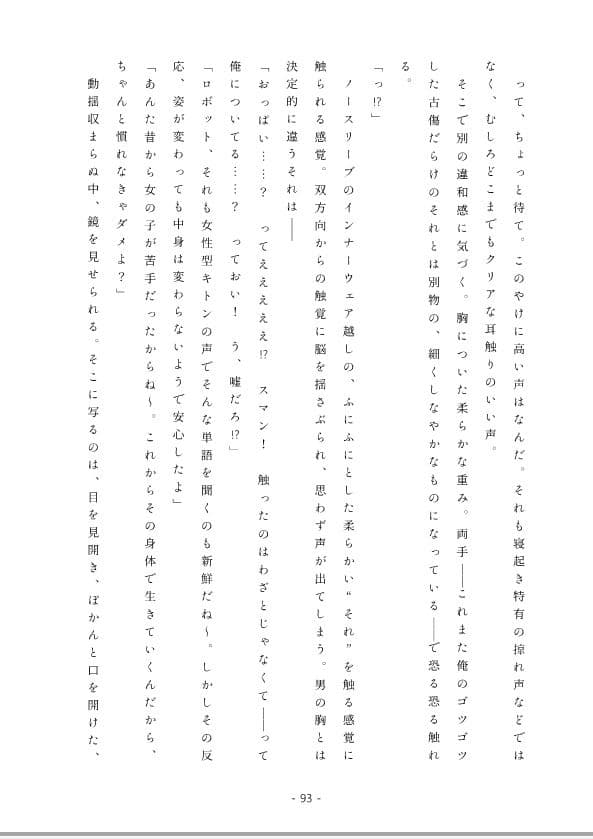 って、ちょっと待て。このやけに高い声はなんだ。それも寝起き特有の掠れ声などでは
なく、むしろどこまでもクリアな耳触りのいい声。
そこで別の違和感に気づく。胸についた柔らかな重み。両手――これまた俺のゴツゴツ
した古傷だらけのそれとは別物の、細くしなやかなものになっている――で恐る恐る触れ
る。
「っ!?」
ノースリーブのインナーウェア越しの、ふにふにとした柔らかい“それ”を触る感覚に
触られる感覚。双方向からの触覚に脳を揺さぶられ、思わず声が出てしまう。男の胸とは
決定的に違うそれは――
「おっぱい……? ってえええええ!? スマン! 触ったのはわざとじゃなくて――って
俺についてる……? っておい! う、嘘だろ!?」
「ロボット、それも女性型キトンの声でそんな単語を聞くのも新鮮だね～。しかしその反
応、姿が変わっても中身は変わらないようで安心したよ」
「あんた昔から女の子が苦手だったからね～。これからその身体で生きていくんだから、
ちゃんと慣れなきゃダメよ?」
動揺収まらぬ中、鏡を見せられる。そこに写るのは、目を見開き、ぽかんと口を開けた、
- 93 -